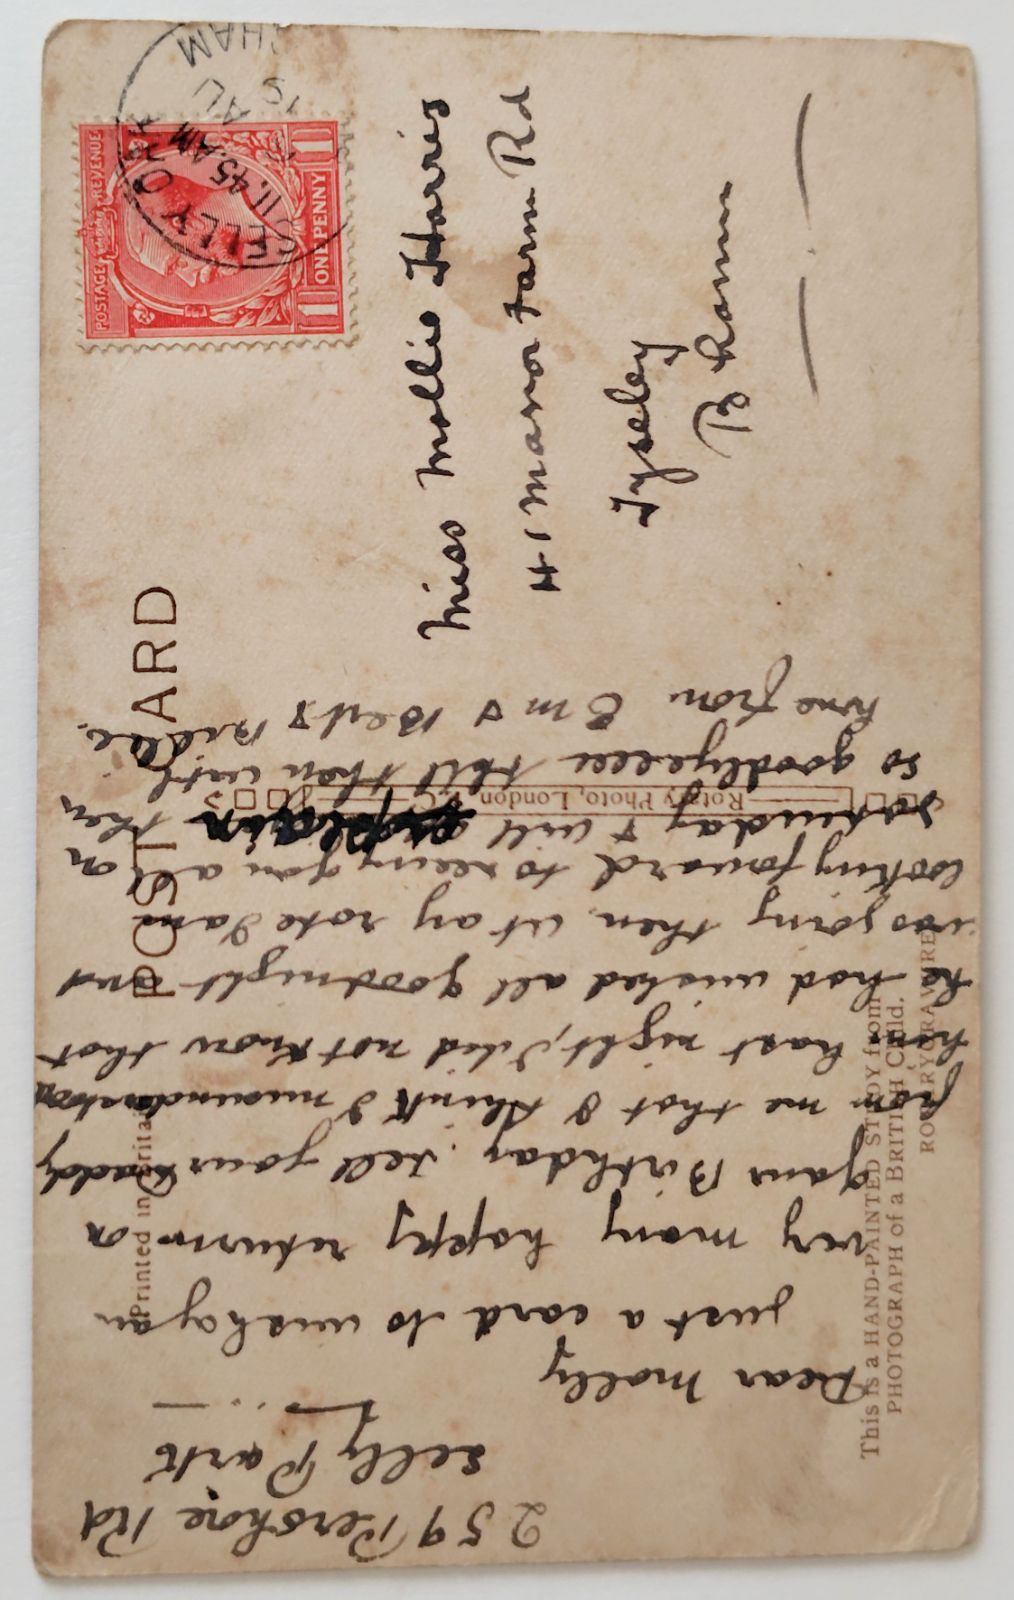 POST CARD
Printed in Britain
This is a HAND-PAINTED STUDY from
PHOTOGRAPH of a BRITISH Child.
ROTARYGRAVURE
Rotary Photo, London, E.C.
POSTAGE REVENUE
1 ONE PENNY 1
SELLY OAK
11.45 AM
Miss Mollie Harris
41 Manor Farm Rd
Tyseley
B'ham
259 Pershore Rd
Selly Park
Dear Molly
just a card to wish you
very many happy returns on
your Birthday. tell your Daddy
from me that I think I misunderstood
him last night, I did not know that
he had wished all goodnight and
was going then, at any rate I am
looking forward to seeing you all on
saturday & will explain then
so goodbyeeee till then with
love from Em & Bert &